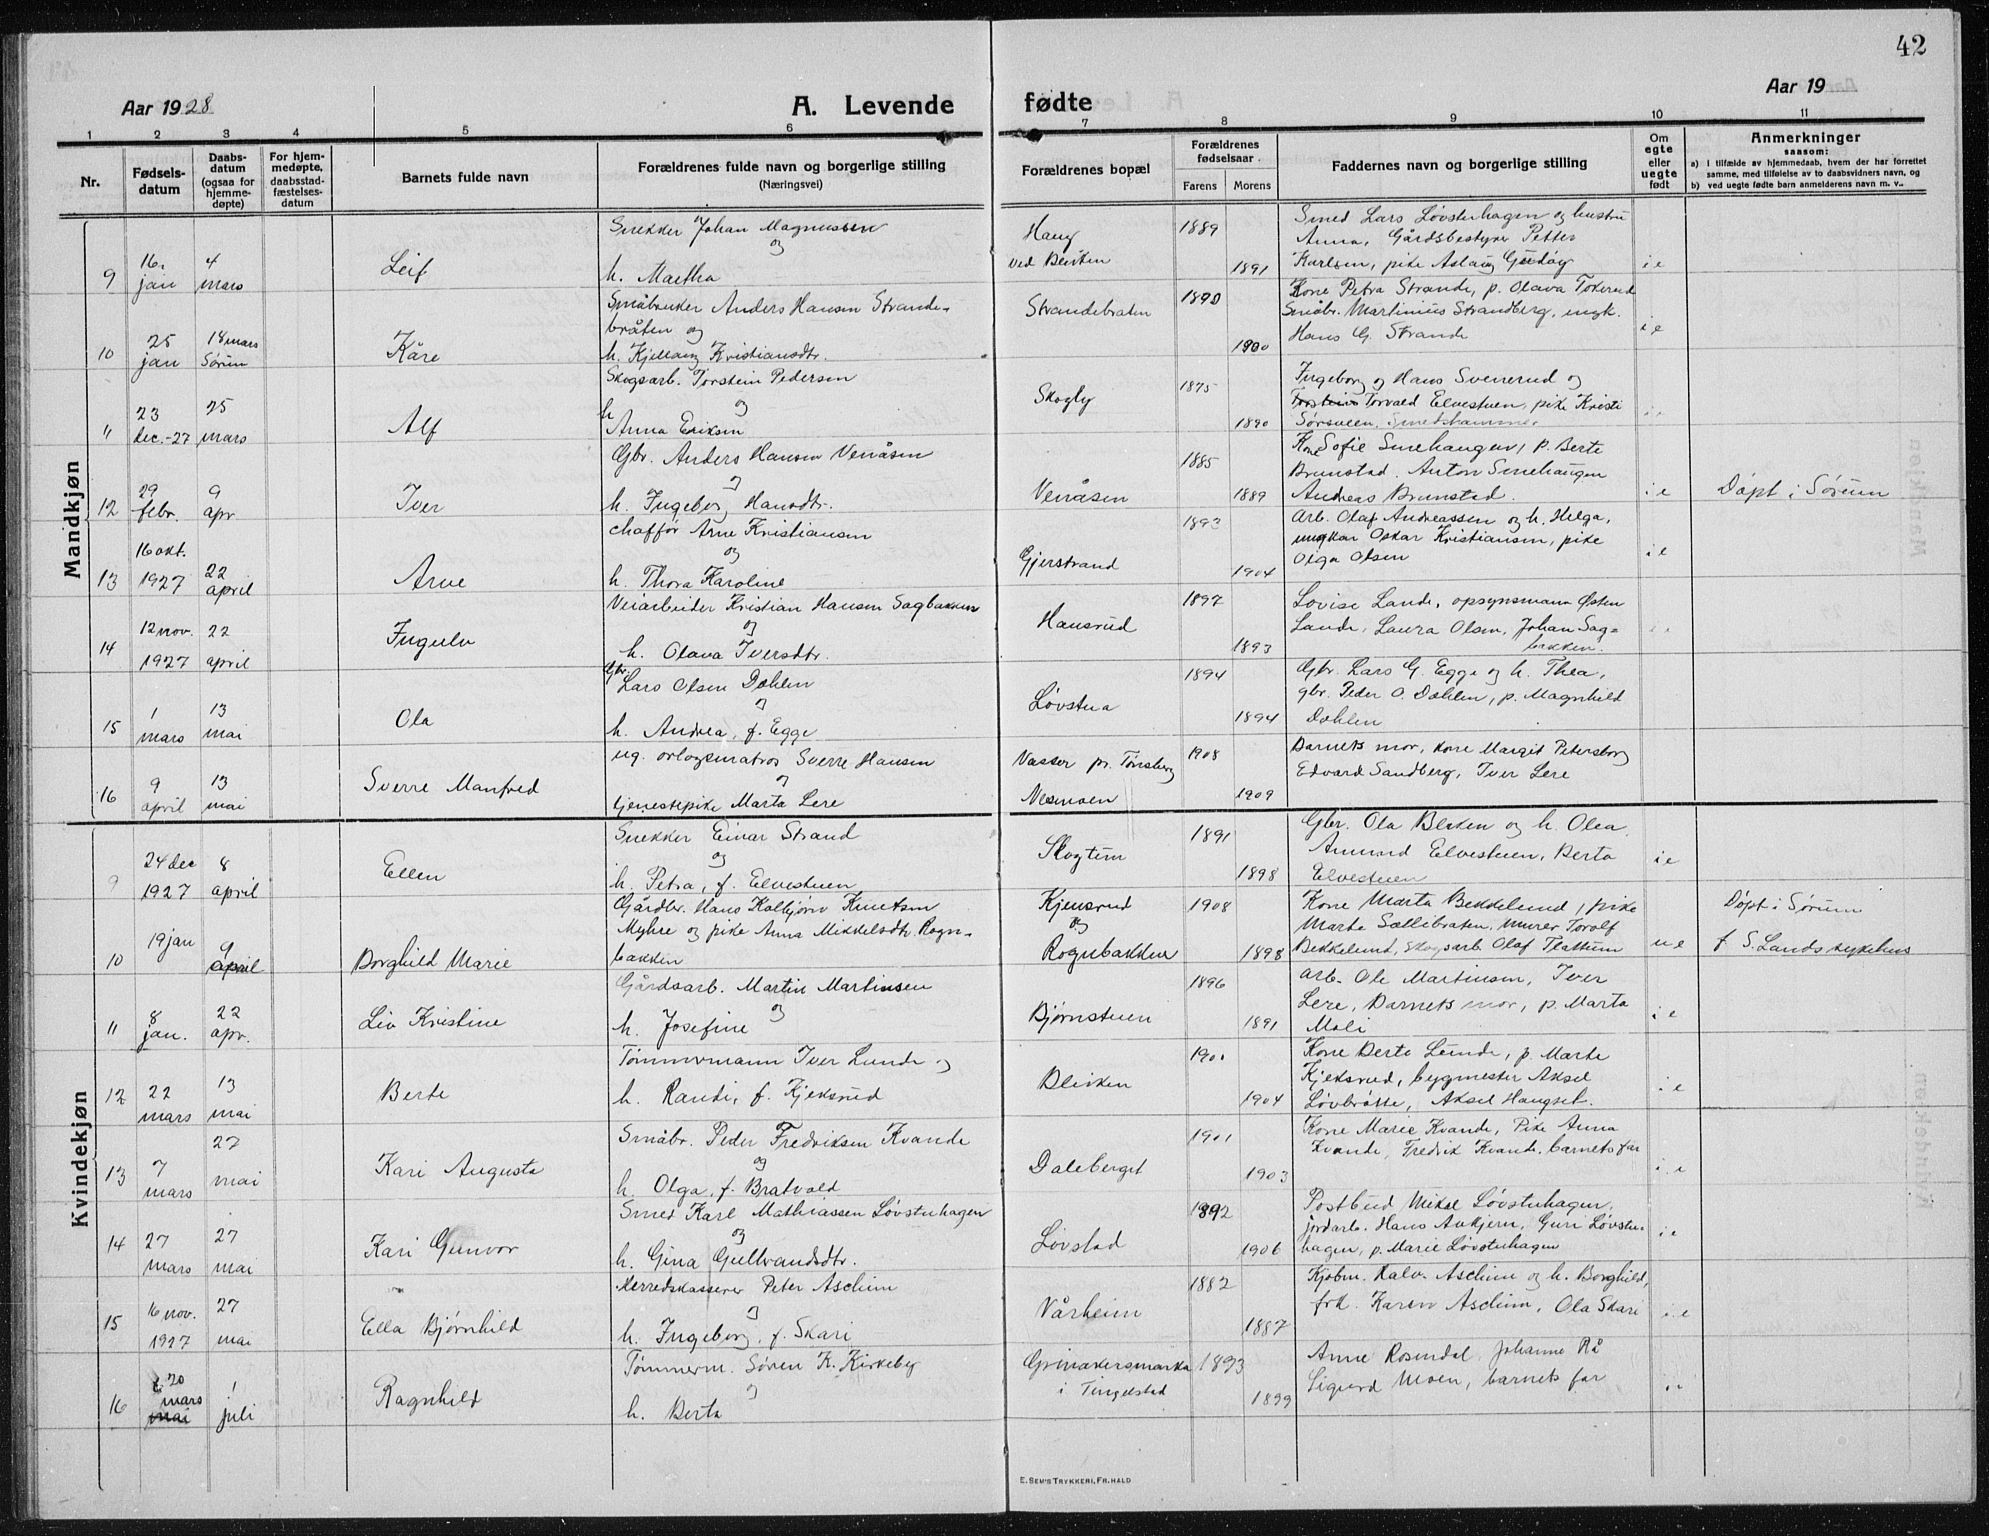 42
Aar 1928
A. Levende fødte
Aar 19
1 2 3 4 5 6 7 8 9 10 11
Nr.
Fødsels-
datum
Daabs-
datum
(ogsaa for
hjemme-
døpte)
For hjem-
medøpte,
daabsstad-
fæstelses-
datum
Barnets fulde navn
Forældrenes fulde navn og borgerlige stilling
(Næringsvei)
Forældrenes bopæl
Forældrenes
fødselsaar
Farens Morens
Faddernes navn og borgerlige stilling
Om
egte
eller
uegte
født
Anmerkninger
saasom:
a) I tilfælde av hjemmedaab, hvem der har forrettet
samme, med tilføielse av to daabsvidners navn, og
b) ved uegte fødte barn anmelderens navn m. v.
Mandkjøn
9
16.
jan
4
mars
Leif
Snekker Johan Magnussen
og
h. Martha
Haug
ved
1889
1891
Smed Lars Løvstuhagen og hustru
Anna, Gårdsbestyrer Petter
Karlsen, pike Aslaug
i e
10
25
jan
18 mars
Sørum
Kåre
Småbruker Anders Hansen Strande-
bråten og
h. Kjellaug Kristiansdtr.
Strandebraten
1890
1900
Kone Petra Strande, p. Olava
Småbr. Martinius Strandberg, ungk.
Hans G. Strande
i e
11
23
dec.-27
25
mars
Alf
Skogsarb. Torstein Pedersen
og
h
Anna Eriksen
Skogly
1875
1890
Ingeborg og Hans Svenerud og
Torvald Elvestuen, pike Kristi
Sørsveen,
i e
12
29
febr.
9
apr
Iver
Gbr. Anders Hansen Venåsen
og
h. Ingeborg Hansdtr.
Venåsen
1885
1889
Kone Sofie Smehaugen, p. Berte
Brunstad. Anton Smehaugen
Andreas Brunstad.
i e
Døpt i Sørum
13
16 okt.
1927
22
april
Arve
chaffør Arne Kristiansen
og
h. Thora Karoline
Gjerstrand
1893
1904
Arb. Olaf Andreassen og h. Helga,
ungkar Oskar Kristiansen, pike
Olga Olsen
i e
14
12 nov.
1927
22
april
Ingulv
Veiarbeider Kristian Hansen Sagbakken
og
h. Olava Iversdtr.
Hansrud
1897
1893
Lovise Lande, opsynsmann Østen
Lande, Laura Olsen, Johan Sag-
bakken.
15
1
mars
13
mai
Ola
Gbr.
Lars Olsen Dæhlen
og
h. Andrea, f. Egge
Løvstua
1894
1894
Gbr. Lars G. Egge og h. Thea,
gbr. Peder O. Dæhlen, p. Magnhild
Dæhlen
16
9
april
13
mai
Sverre Manfred
ug. orlogsmatros Sverre Hansen
og
tjenestepike Marta Lere
Vasser pr. Tønsberg
Nesmoen
1908
1909
Barnets mor, kone Margit Petersborg
Edvard Sandberg, Iver Lere
Kvindekjøn
9
24 dec
1927
8
april
Ellen
Snekker Einar Strand
og
h. Petra, f. Elvestuen
Skogtun
1891
1898
Gbr. Ola Bleken og h. Olea,
Amund Elvestuen, Berta
Elvestuen
i e
10
19 jan
9
april
Borghild Marie
Gårdbr. Hans Kolbjørn Knutsen
Myhre og pike Anna Mikkelsdtr. Rogn-
bakken
Kjensrud
og
Rognebakken
1908
1898
Kone Marta Bekkelund, pike
Marte Sætlibraten, murer Torolf
Bekkelund, Skogsarb. Olaf Flattum
u e
Døpt i Sørum
f. S. Lands sykehus
11
8
jan.
22
apr.
Liv Kristine
Gårdsarb. Martin Martinsen
og
h. Josefine
Bjørnstuen
1896
1891
Arb. Ole Martinsen, Iver
Lere, Barnets mor, p. Marta
Moli
i e
12
22
mars
13
mai
Berte
Tømmermann Iver Lunde og
h. Randi, f. Kjeksrud
Bleiken
1901
1904
Kone Berte Lunde, p. Marte
Kjeksrud, bygmester Aksel
Løvbrøtte, Aksel Haugset.
i e
13
7
mars
27
mai
Kari Augusta
Småbr. Peder Fredriksen Kvande
og
h. Olga, f. Bratvold
Daleberget
1901
1903
Kone Marie Kvande, Pike Anna
Kvande, Fredrik Kvande, barnets far
i e
14
27
mars
27
mai
Kari Gunvor
Smed Karl Mathiassen Løvstuhagen
og
h. Gina Gulbrandsdtr.
Løvstad
1892
1906
Postbud Mikal Løvstuhagen,
jordarb. Hans Aukjern, Guri Løvstu-
hagen, p. Marie Løvstuhagen
i e
15
16 nov.
1927
27
mai
Ella Bjørnhild
Herredskasserer Peter Aschim
og
h. Ingeborg, f. Skari
Vårheim
1882
1887
Kjøbm. Halv. Aschim og h. Borghild,
frk. Karen Aschim, Ola Skari
i e
16
20
mars
mai
1
juli
Ragnhild
Tømmerm. Søren K. Kirkeby
og
h. Berta
Grinakersmarka
i Tingelstad
1893
1899
Anne Rosendal, Johanne Rå
Sigurd Moen, barnets far
i e
E. SEM'S TRYKKERI, FR.HALD